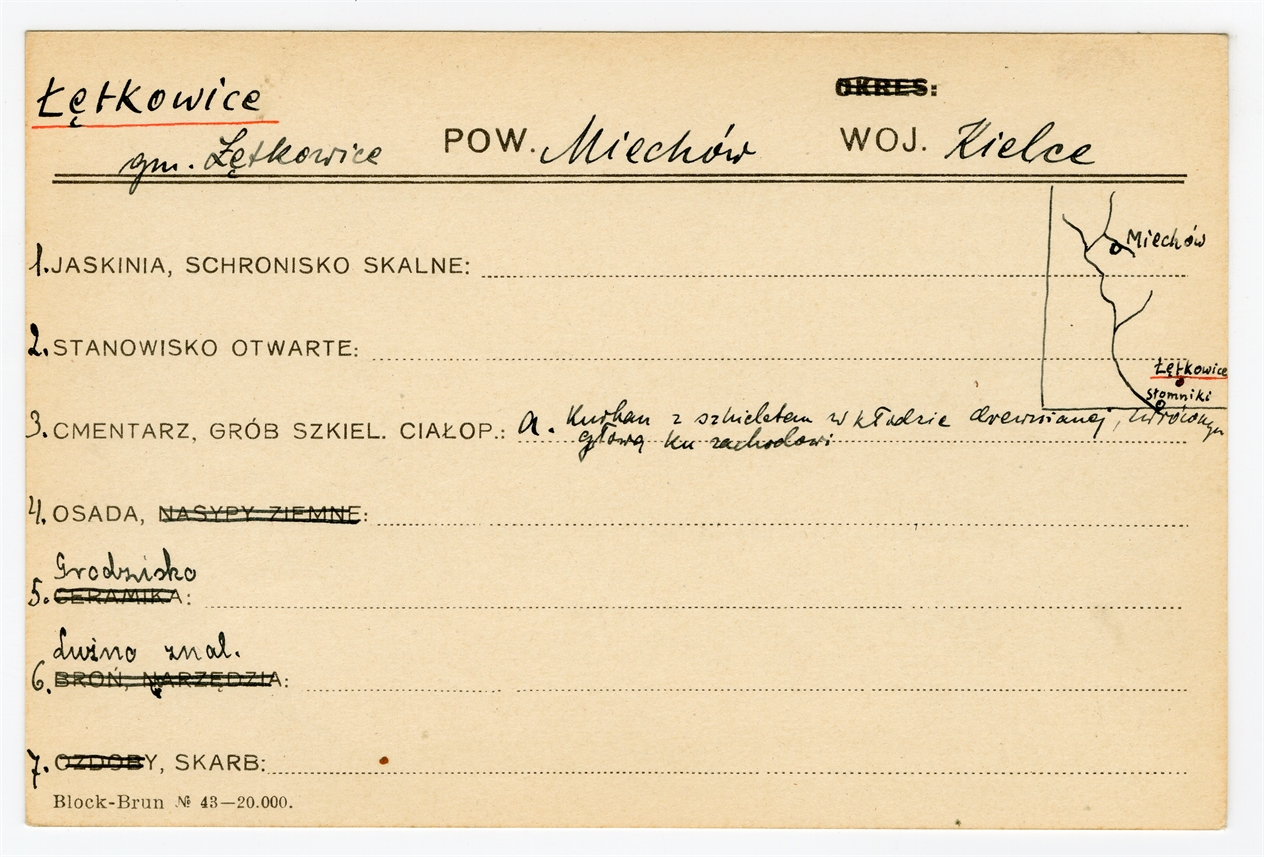 Łętkowice
OKRES:
gm. Łętkowice POW. Miechów WOJ. Kielce
Miechów
1. JASKINIA, SCHRONISKO SKALNE:
2. STANOWISKO OTWARTE:
Łętkowice
Słomniki
3. CMENTARZ, GRÓB SZKIEL. CIAŁOP.: a. Kurhan z szkieletem w kłodzie drewnianej, zwróconym
głową ku zachodowi
4. OSADA, NASYPY ZIEMNE:
Grodzisko
5. CERAMIKA:
Luźno znal.
6. BROŃ, NARZĘDZIA:
7. OZDOBY, SKARB:
Block-Brun № 43—20.000.